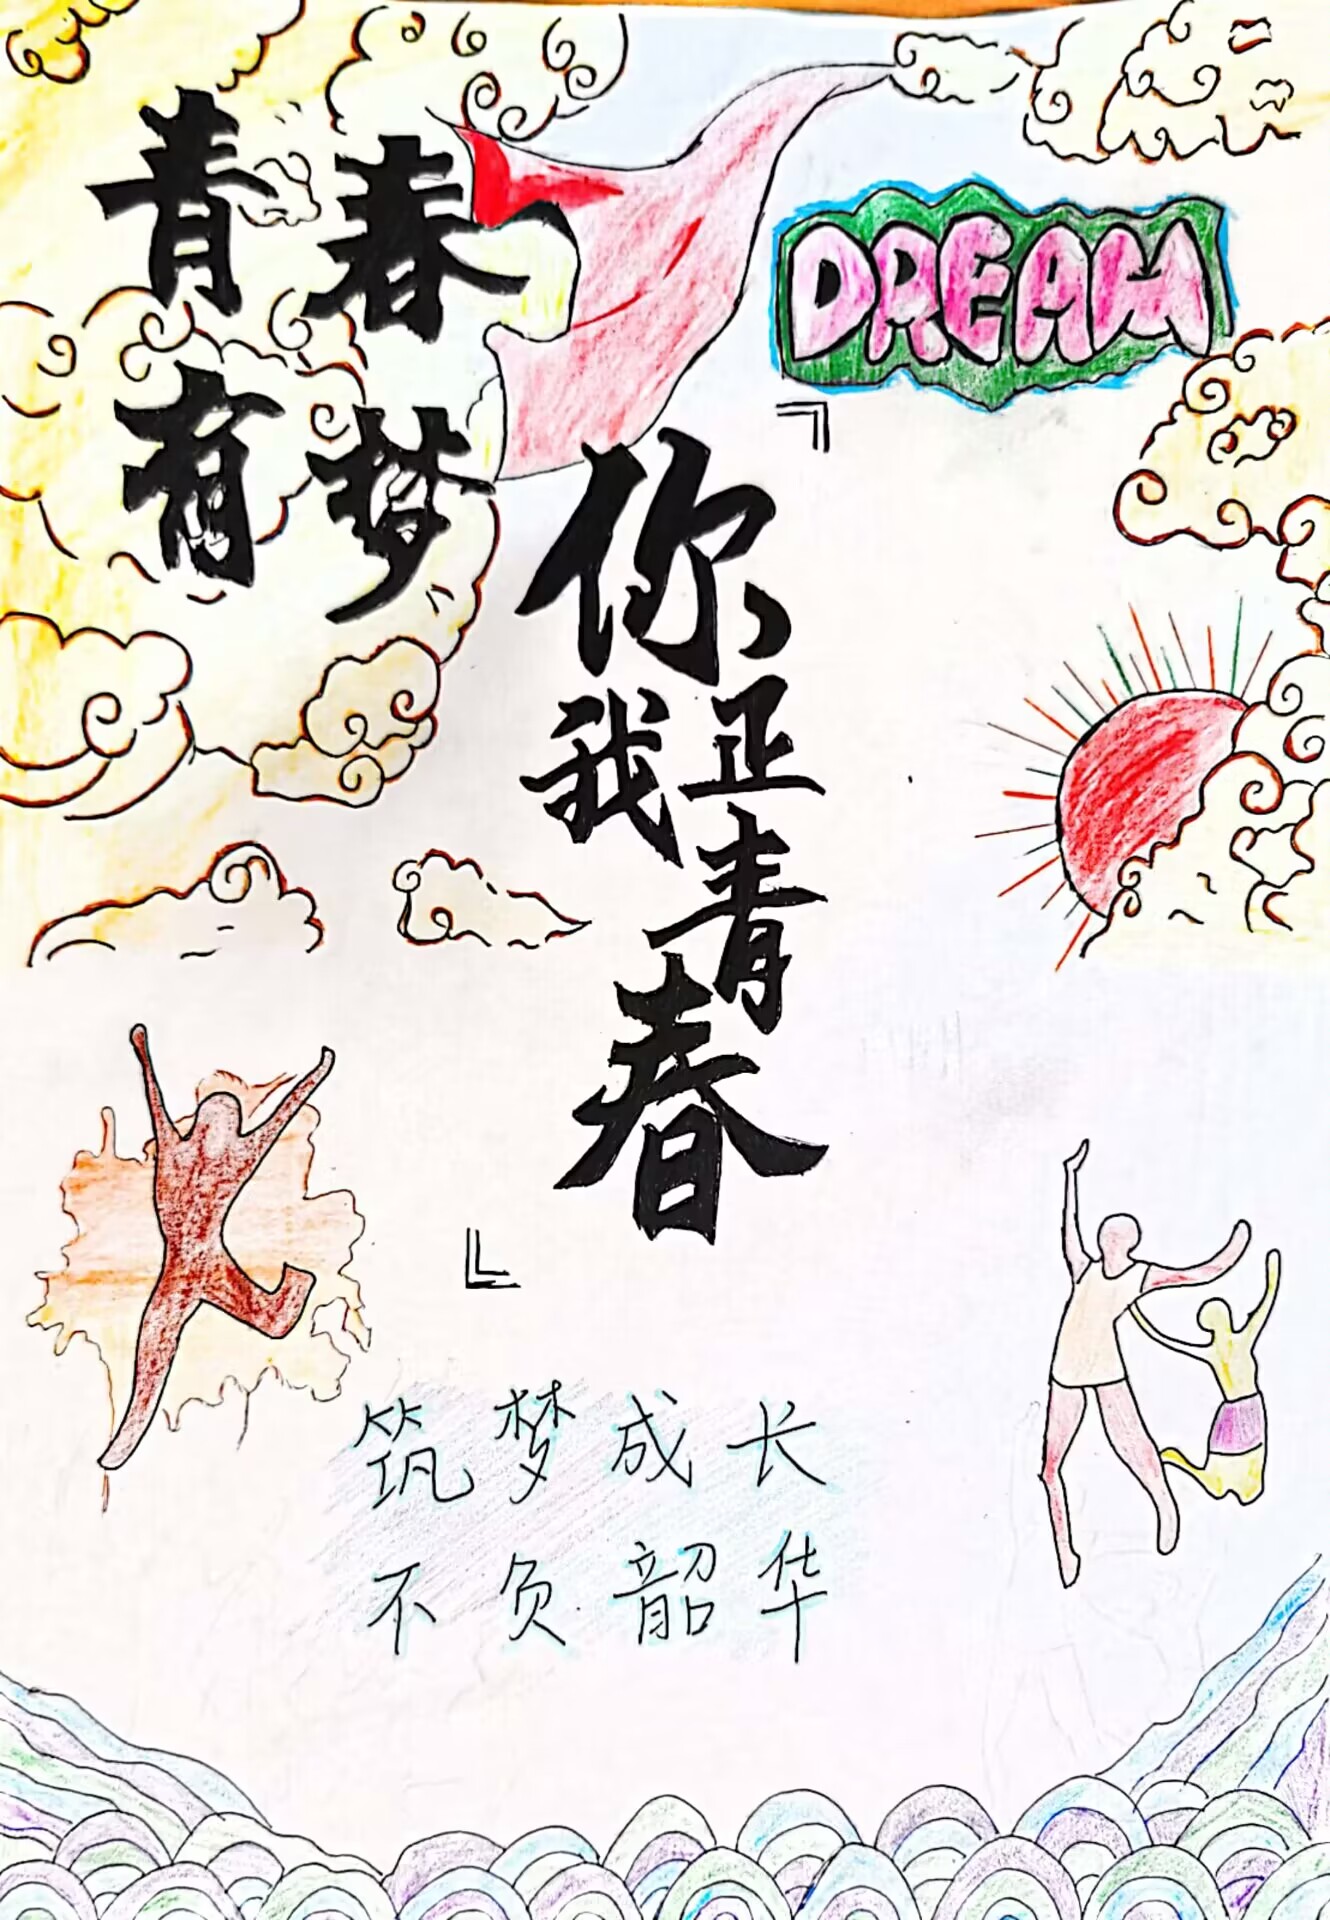 青春
有梦
DREAM
你
我正
青
春
筑梦成长
不负韶华